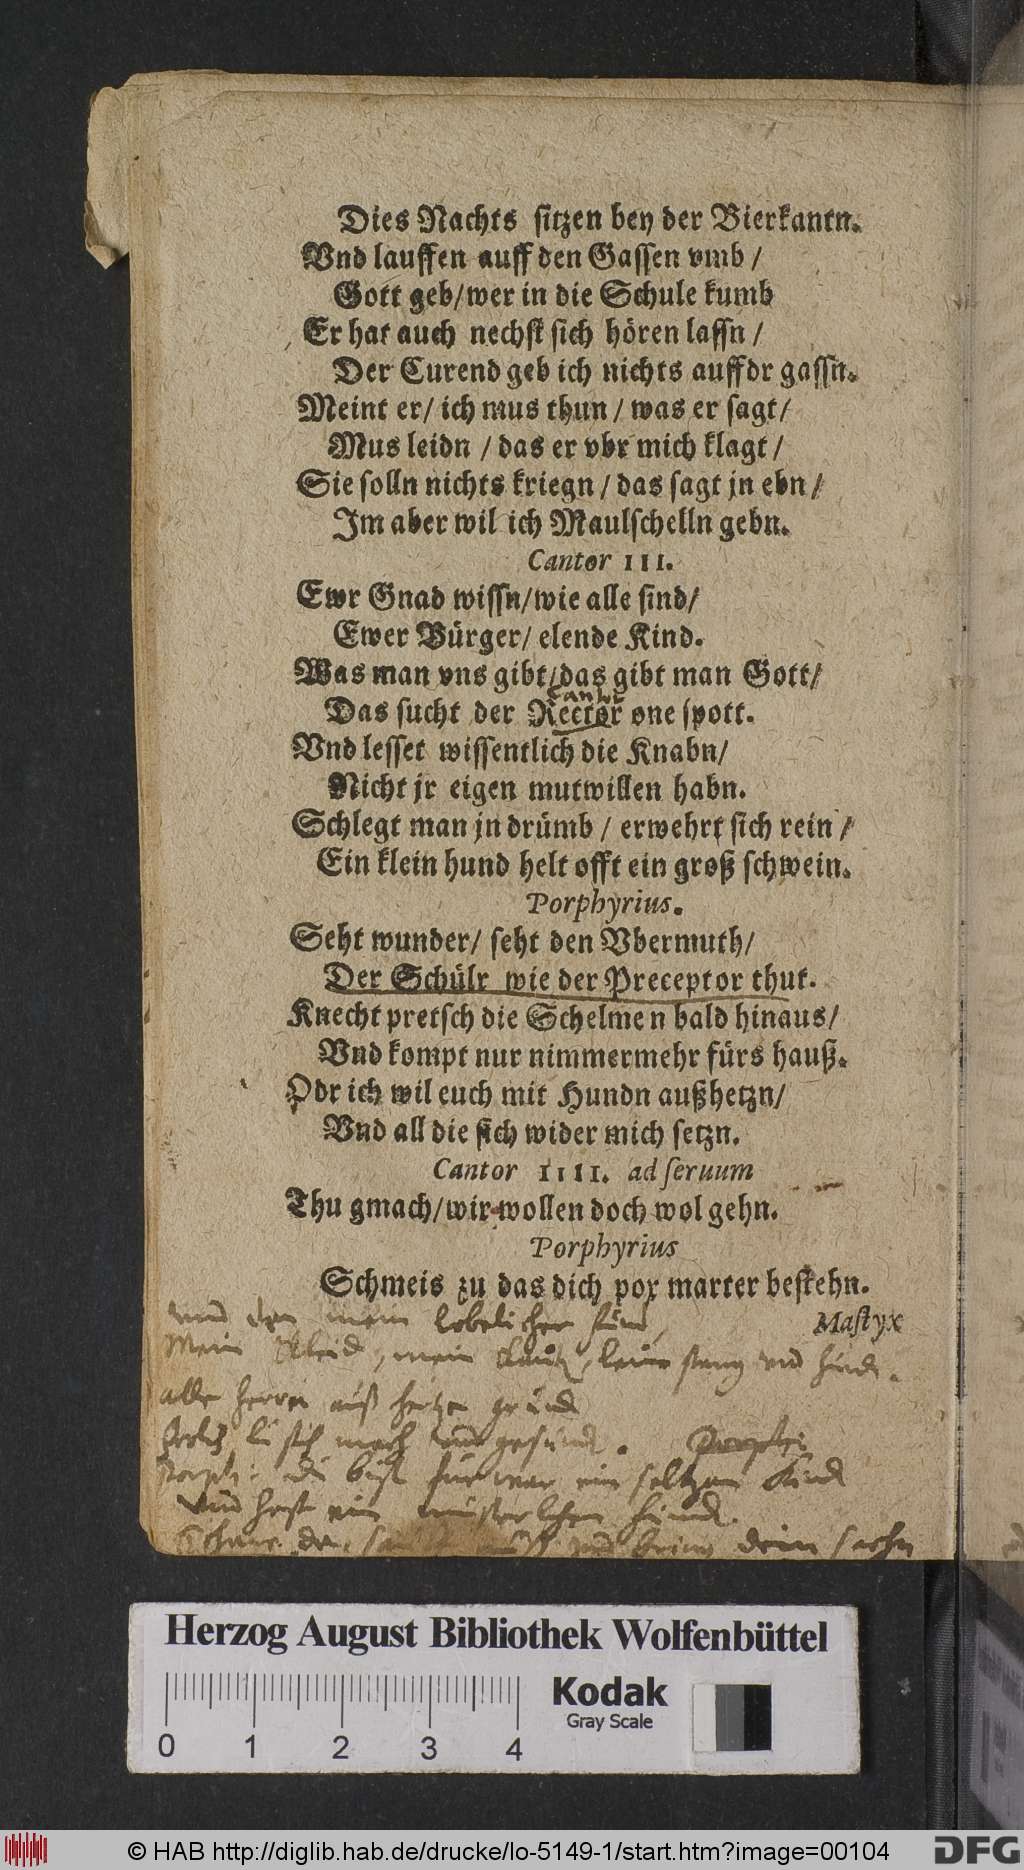 Dies Nachts sitzen bey der Bierkantn.
Vnd lauffen auff den Gassen vmb /
Gott geb/wer in die Schule kumb
Er hat auch nechst sich hören lassn /
Der Curend geb ich nichts auffdr gassn.
Meint er/ ich mus thun / was er sagt/
Mus leidn / das er vbr mich klagt /
Sie solln nichts kriegn / das sagt jn ebn /
Jm aber wil ich Maulschelln gebn.
Cantor III.
Ewr Gnad wissn/wie alle sind/
Ewer Bürger/ elende Kind.
Was man vns gibt/das gibt man Gott/
Das sucht der Rector one spott.
Vnd lesset wissentlich die Knabn/
Nicht jr eigen mutwillen habn.
Schlegt man jn drümb / erwehrt sich rein /
Ein klein hund helt offt ein groß schwein.
Porphyrius.
Seht wunder/ seht den Vbermuth/
Der Schülr wie der Preceptor thut.
Knecht pretsch die Schelmen bald hinaus/
Vnd kompt nur nimmermehr fürs hauß.
Odr ich wil euch mit Hundn außhetzn/
Vnd all die sich wider mich setzn.
Cantor IIII. ad seruum
Thu gmach/wir wollen doch wol gehn.
Porphyrius
Schmeis zu das dich pox marter bestehn.
Mastyx
mein
Mein mein
alle
mach
du bist ein Kind
ein
dein
Herzog August Bibliothek Wolfenbüttel
Kodak
Gray Scale
0 1 2 3 4
© HAB http://diglib.hab.de/drucke/lo-5149-1/start.htm?image=00104
DFG